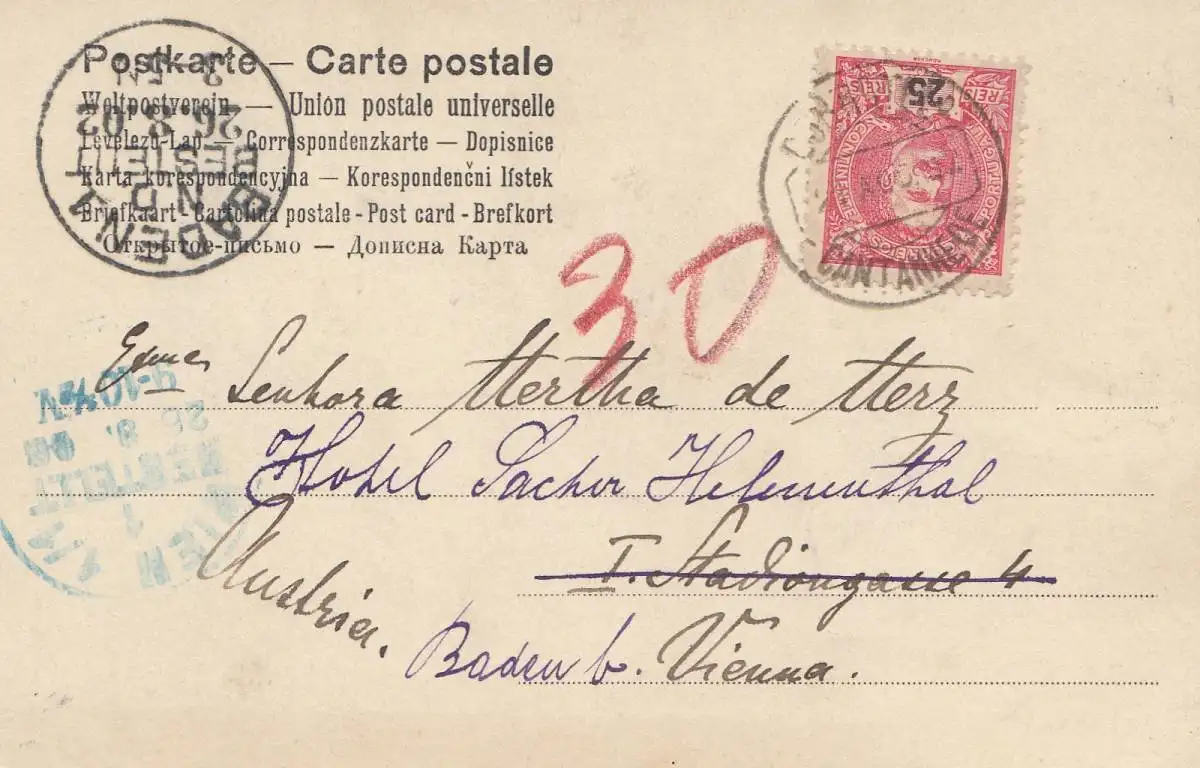 Postkarte — Carte postale
Weltpostverein — Union postale universelle
Levelező-Lap — Correspondenzkarte — Dopisnice
Karta korespondencyjna — Korespondenční lístek
Briefkaart - Cartolina postale - Post card - Brefkort
Открытое-письмо — Дописна Карта
BADEN
BESTELLT
26 8 02
25
REIS
REIS
PORTUGAL
CONTINENTE
CANTANHEDE
30
Exma
Senhora Mertha de Merz
Hotel Sacher Helenenthal
Austria.
I. Stadiongasse 4
Baden b. Vienna.
WIEN
BESTELLT
9-10½V